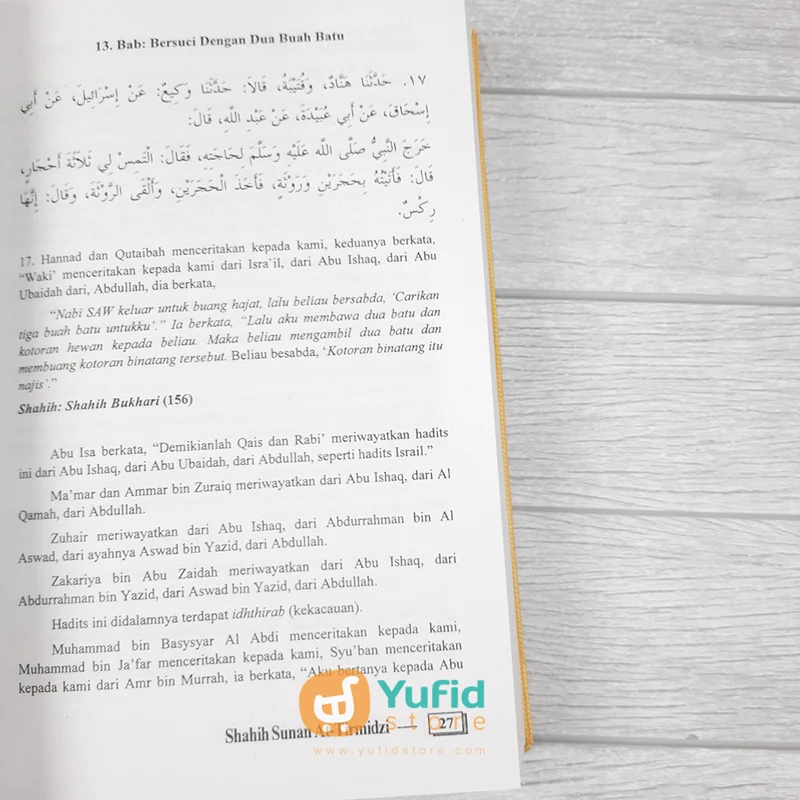 13. Bab: Bersuci Dengan Dua Buah Batu
١٧. حَدَّثَنَا هَنَّادٌ، وَقُتَيْبَةُ، قَالَا: حَدَّثَنَا وَكِيعٌ: عَنْ إِسْرَائِيلَ، عَنْ أَبِي
إِسْحَاقَ، عَنْ أَبِي عُبَيْدَةَ، عَنْ عَبْدِ اللَّهِ، قَالَ:
خَرَجَ النَّبِيُّ صَلَّى اللَّه عَلَيْهِ وَسَلَّمَ لِحَاجَتِهِ، فَقَالَ: الْتَمِسْ لِي ثَلَاثَةَ أَحْجَارٍ،
قَالَ: فَأَتَيْتُهُ بِحَجَرَيْنِ وَرَوْثَةٍ، فَأَخَذَ الْحَجَرَيْنِ، وَأَلْقَى الرَّوْثَةَ، وَقَالَ: إِنَّهَا
رِكْسٌ.
17. Hannad dan Qutaibah menceritakan kepada kami, keduanya berkata,
“Waki’ menceritakan kepada kami dari Isra`il, dari Abu Ishaq, dari Abu
Ubaidah dari, Abdullah, dia berkata,
“Nabi SAW keluar untuk buang hajat, lalu beliau bersabda, ‘Carikan
tiga buah batu untukku’.” Ia berkata, “Lalu aku membawa dua batu dan
kotoran hewan kepada beliau. Maka beliau mengambil dua batu dan
membuang kotoran binatang tersebut. Beliau besabda, ‘Kotoran binatang itu
najis’.”
Shahih: Shahih Bukhari (156)
Abu Isa berkata, “Demikianlah Qais dan Rabi’ meriwayatkan hadits
ini dari Abu Ishaq, dari Abu Ubaidah, dari Abdullah, seperti hadits Israil.”
Ma’mar dan Ammar bin Zuraiq meriwayatkan dari Abu Ishaq, dari Al
Qamah, dari Abdullah.
Zuhair meriwayatkan dari Abu Ishaq, dari Abdurrahman bin Al
Aswad, dari ayahnya Aswad bin Yazid, dari Abdullah.
Zakariya bin Abu Zaidah meriwayatkan dari Abu Ishaq, dari
Abdurrahman bin Yazid, dari Aswad bin Yazid, dari Abdullah.
Hadits ini didalamnya terdapat idhthirab (kekacauan).
Muhammad bin Basysyar Al Abdi menceritakan kepada kami,
Muhammad bin Ja’far menceritakan kepada kami, Syu’ban menceritakan
kepada kami dari Amr bin Murrah, ia berkata, “Aku bertanya kepada Abu
Yufid
store
Shahih Sunan At-Tirmidzi — 27
www.yufidstore.com